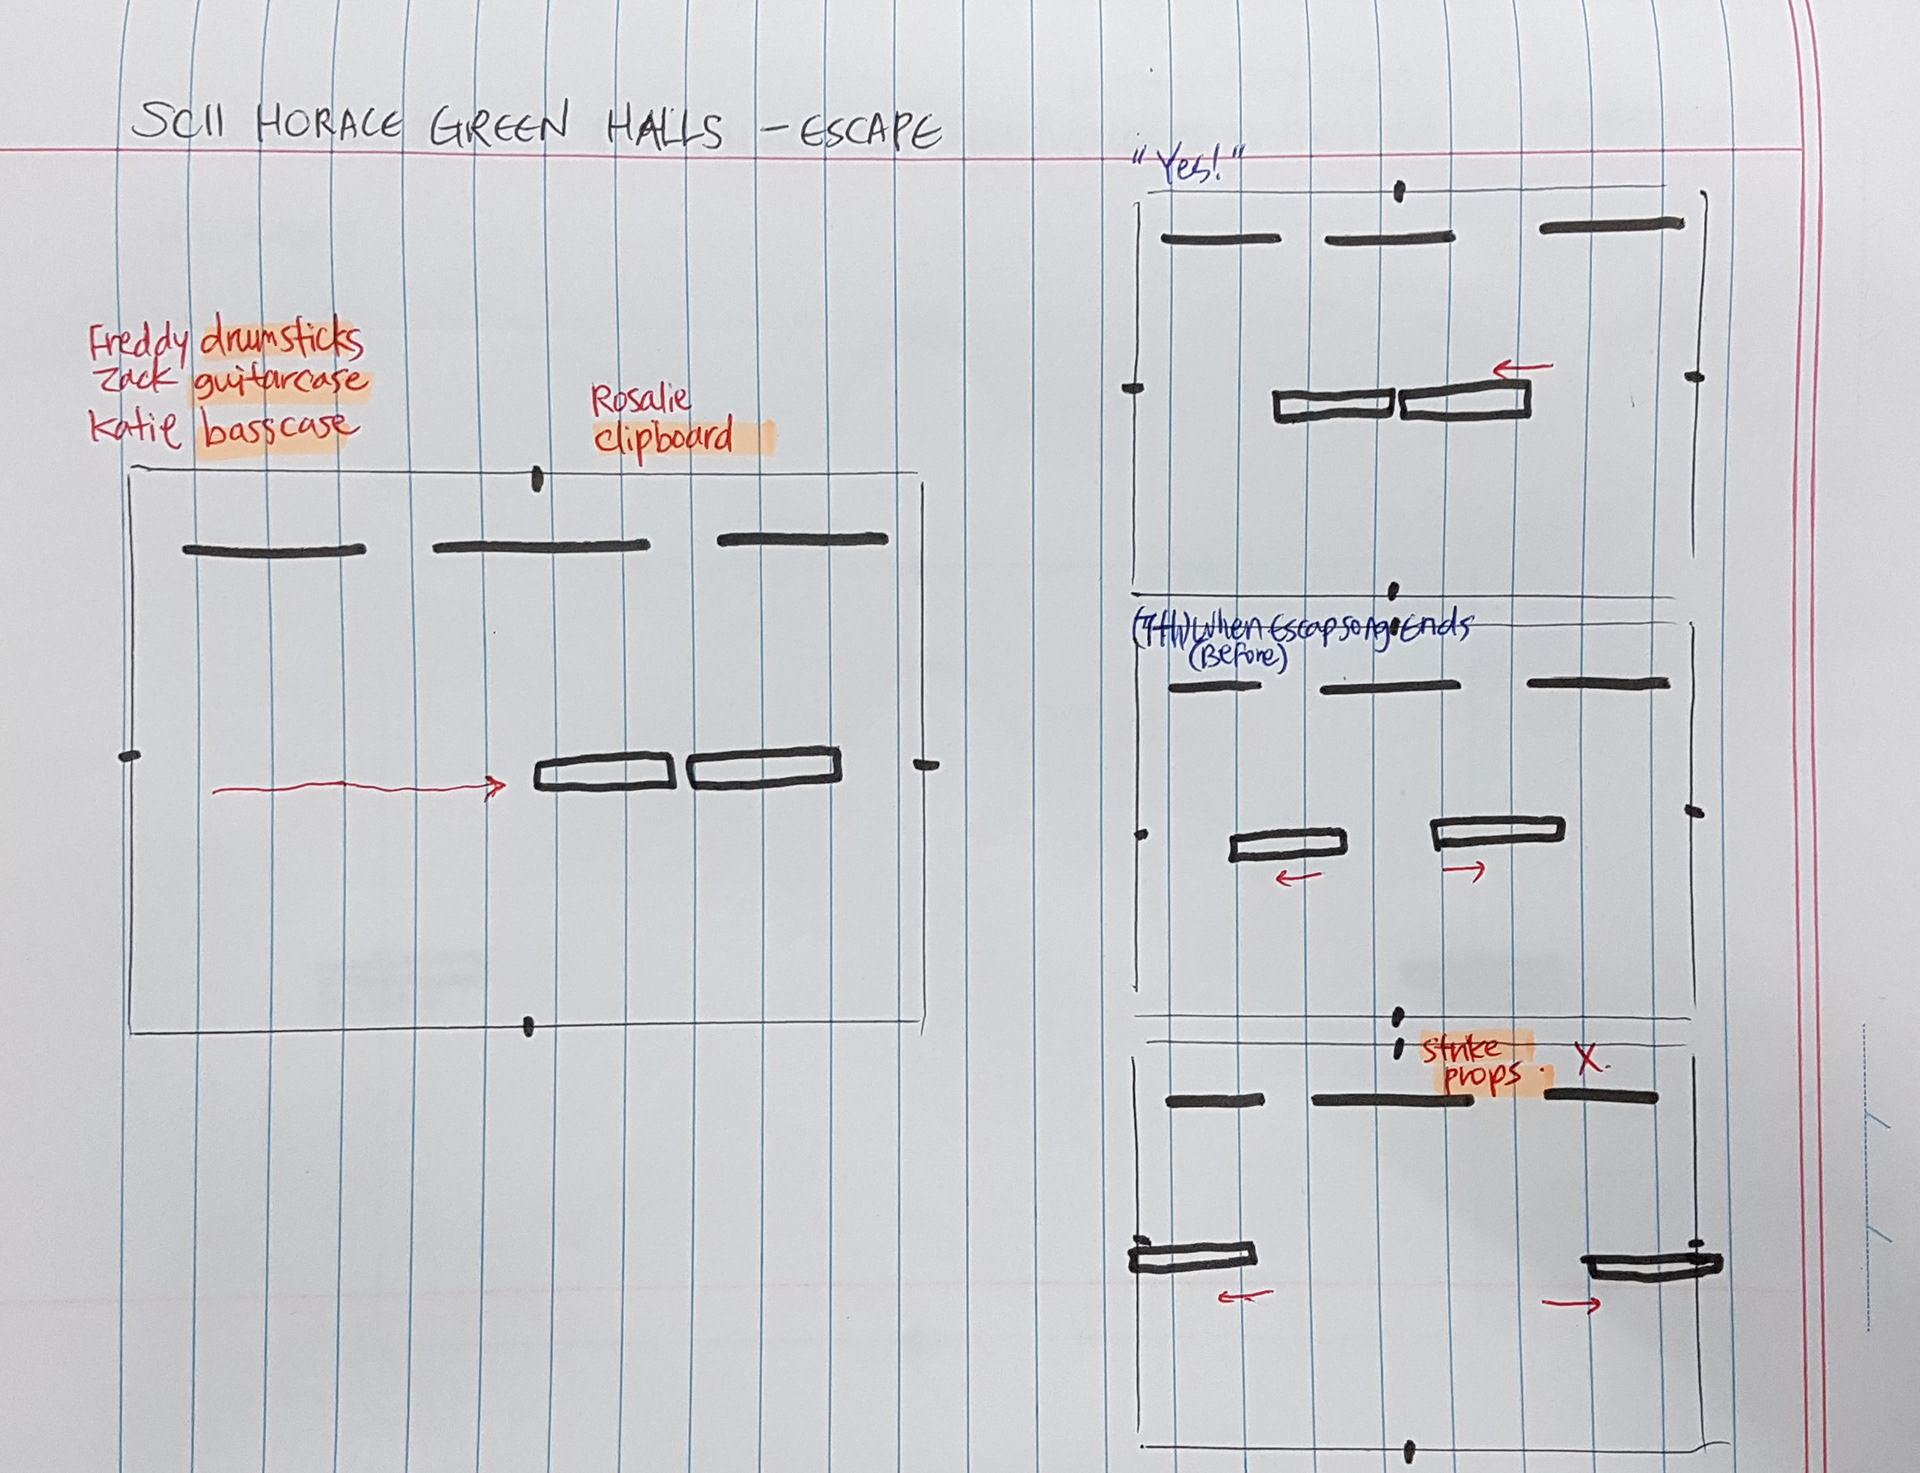 SC11 HORACE GREEN HALLS - ESCAPE
Freddy drumsticks
Zack guitarcase
Katie basscase
Rosalie
clipboard
"Yes!"
When Escap song Ends
(Before)
strike
props.
X.